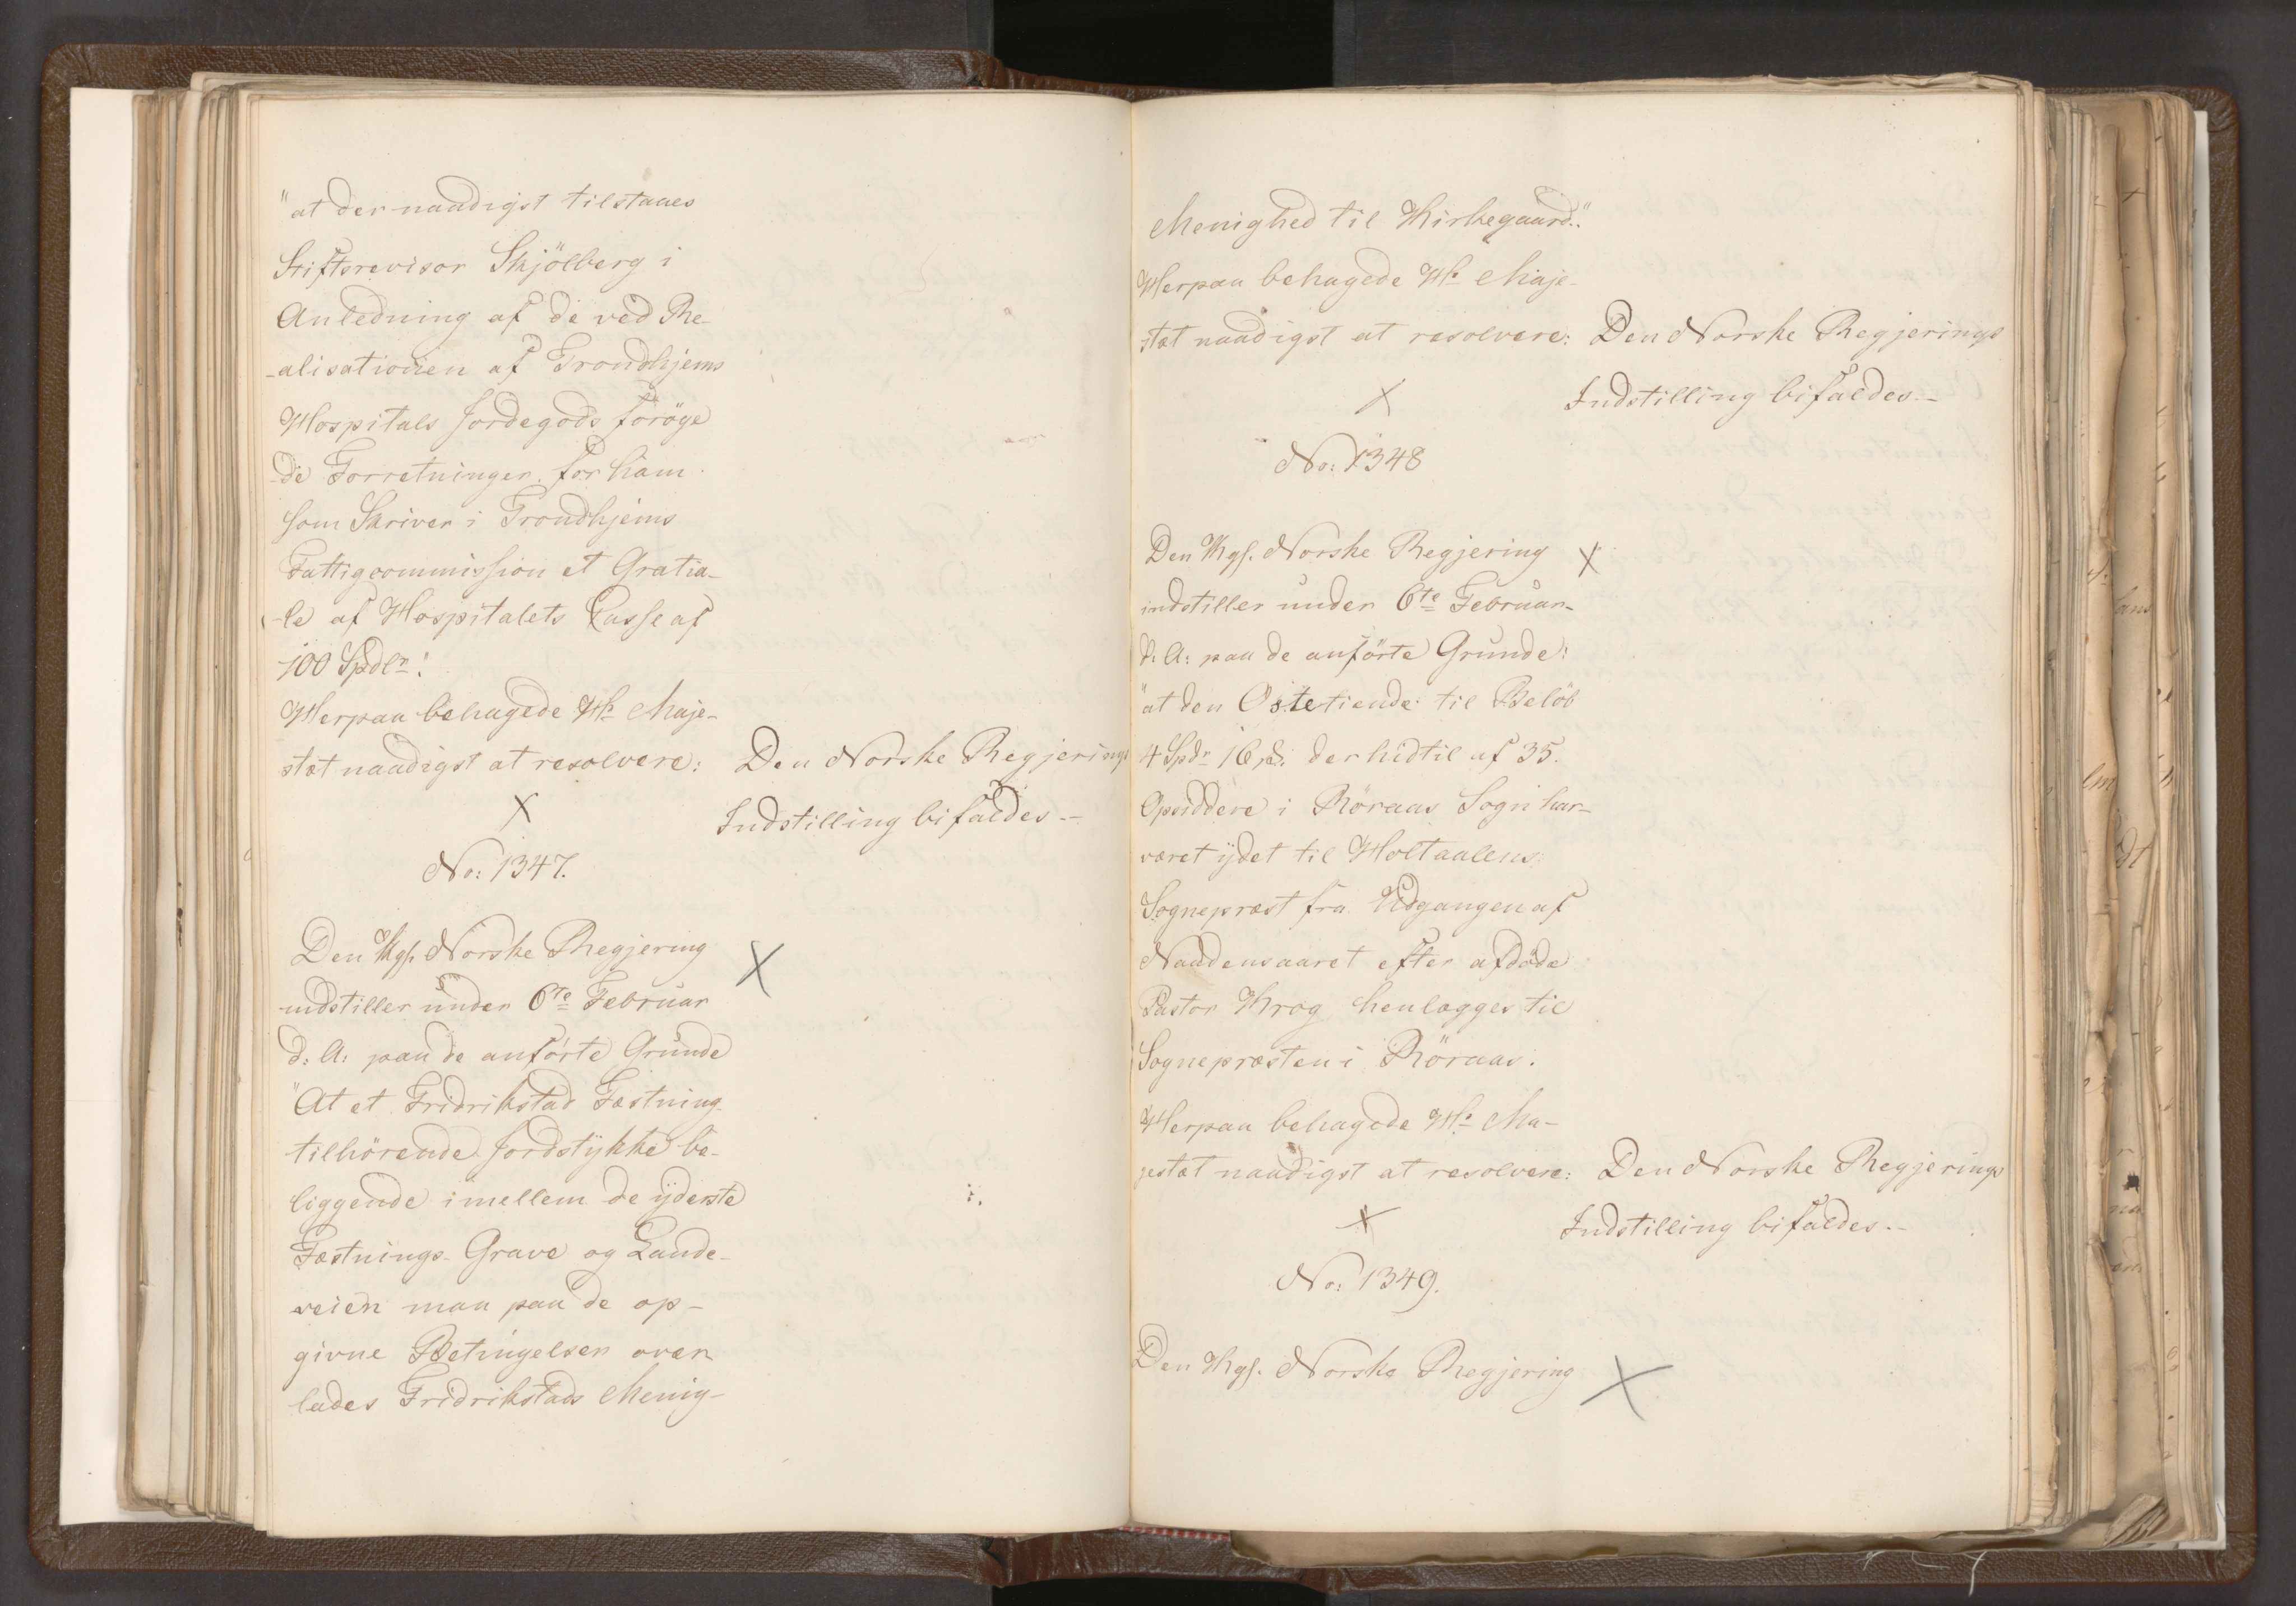 "at der naadigst tilstaaes
Stiftsrevisor Skjölberg i
Anledning af de ved Re-
-alisationen af Trondhjems
Hospitals Jordegods foröge
-de Forretninger for ham
som Skriver i Trondhjems
Fattigcommission et Gratia-
-le af Hospitalets Casse af
100 Spdlr:
Herpaa behagede Hs Maje-
stæt naadigst at resolvere: Den Norske Regjerings
Indstilling bifaldes.-
No: 1347.
Den Kgl. Norske Regjering
indstiller under 6te Februar
d: A: paa de anförte Grunde
"At et Fridrikstad Fæstning
tilhörende Jordstykke be-
liggende imellem de yderste
Fæstnings-Grave og Lande-
veien maa paa de op-
givne Betingelser over
lades Fridrikstads Menig-
Menighed til Kirkegaard."
Herpaa behagede Hs Maje-
stæt naadigst at resolvere: Den Norske Regjerings
Indstilling bifaldes.-
No: 1348
Den Kgl. Norske Regjering
indstiller under 6te Februar
d: A: paa de anförte Grunde:
"at den Ostetiende til Belöb
4 Spdr 16 der hidtil af 35.
Opsiddere i Röraas Sogn har
været ydet til Holtaalens
Sognepræst fra Udgangen af
Naadensaaret efter afdöde
Pastor Krog henlægges til
Sognepræsten i Röraas.
Herpaa behagede Hs Ma-
jestæt naadigst at resolvere: Den Norske Regjerings
Indstilling bifaldes.-
No: 1349.
Den Kgl. Norske Regjering